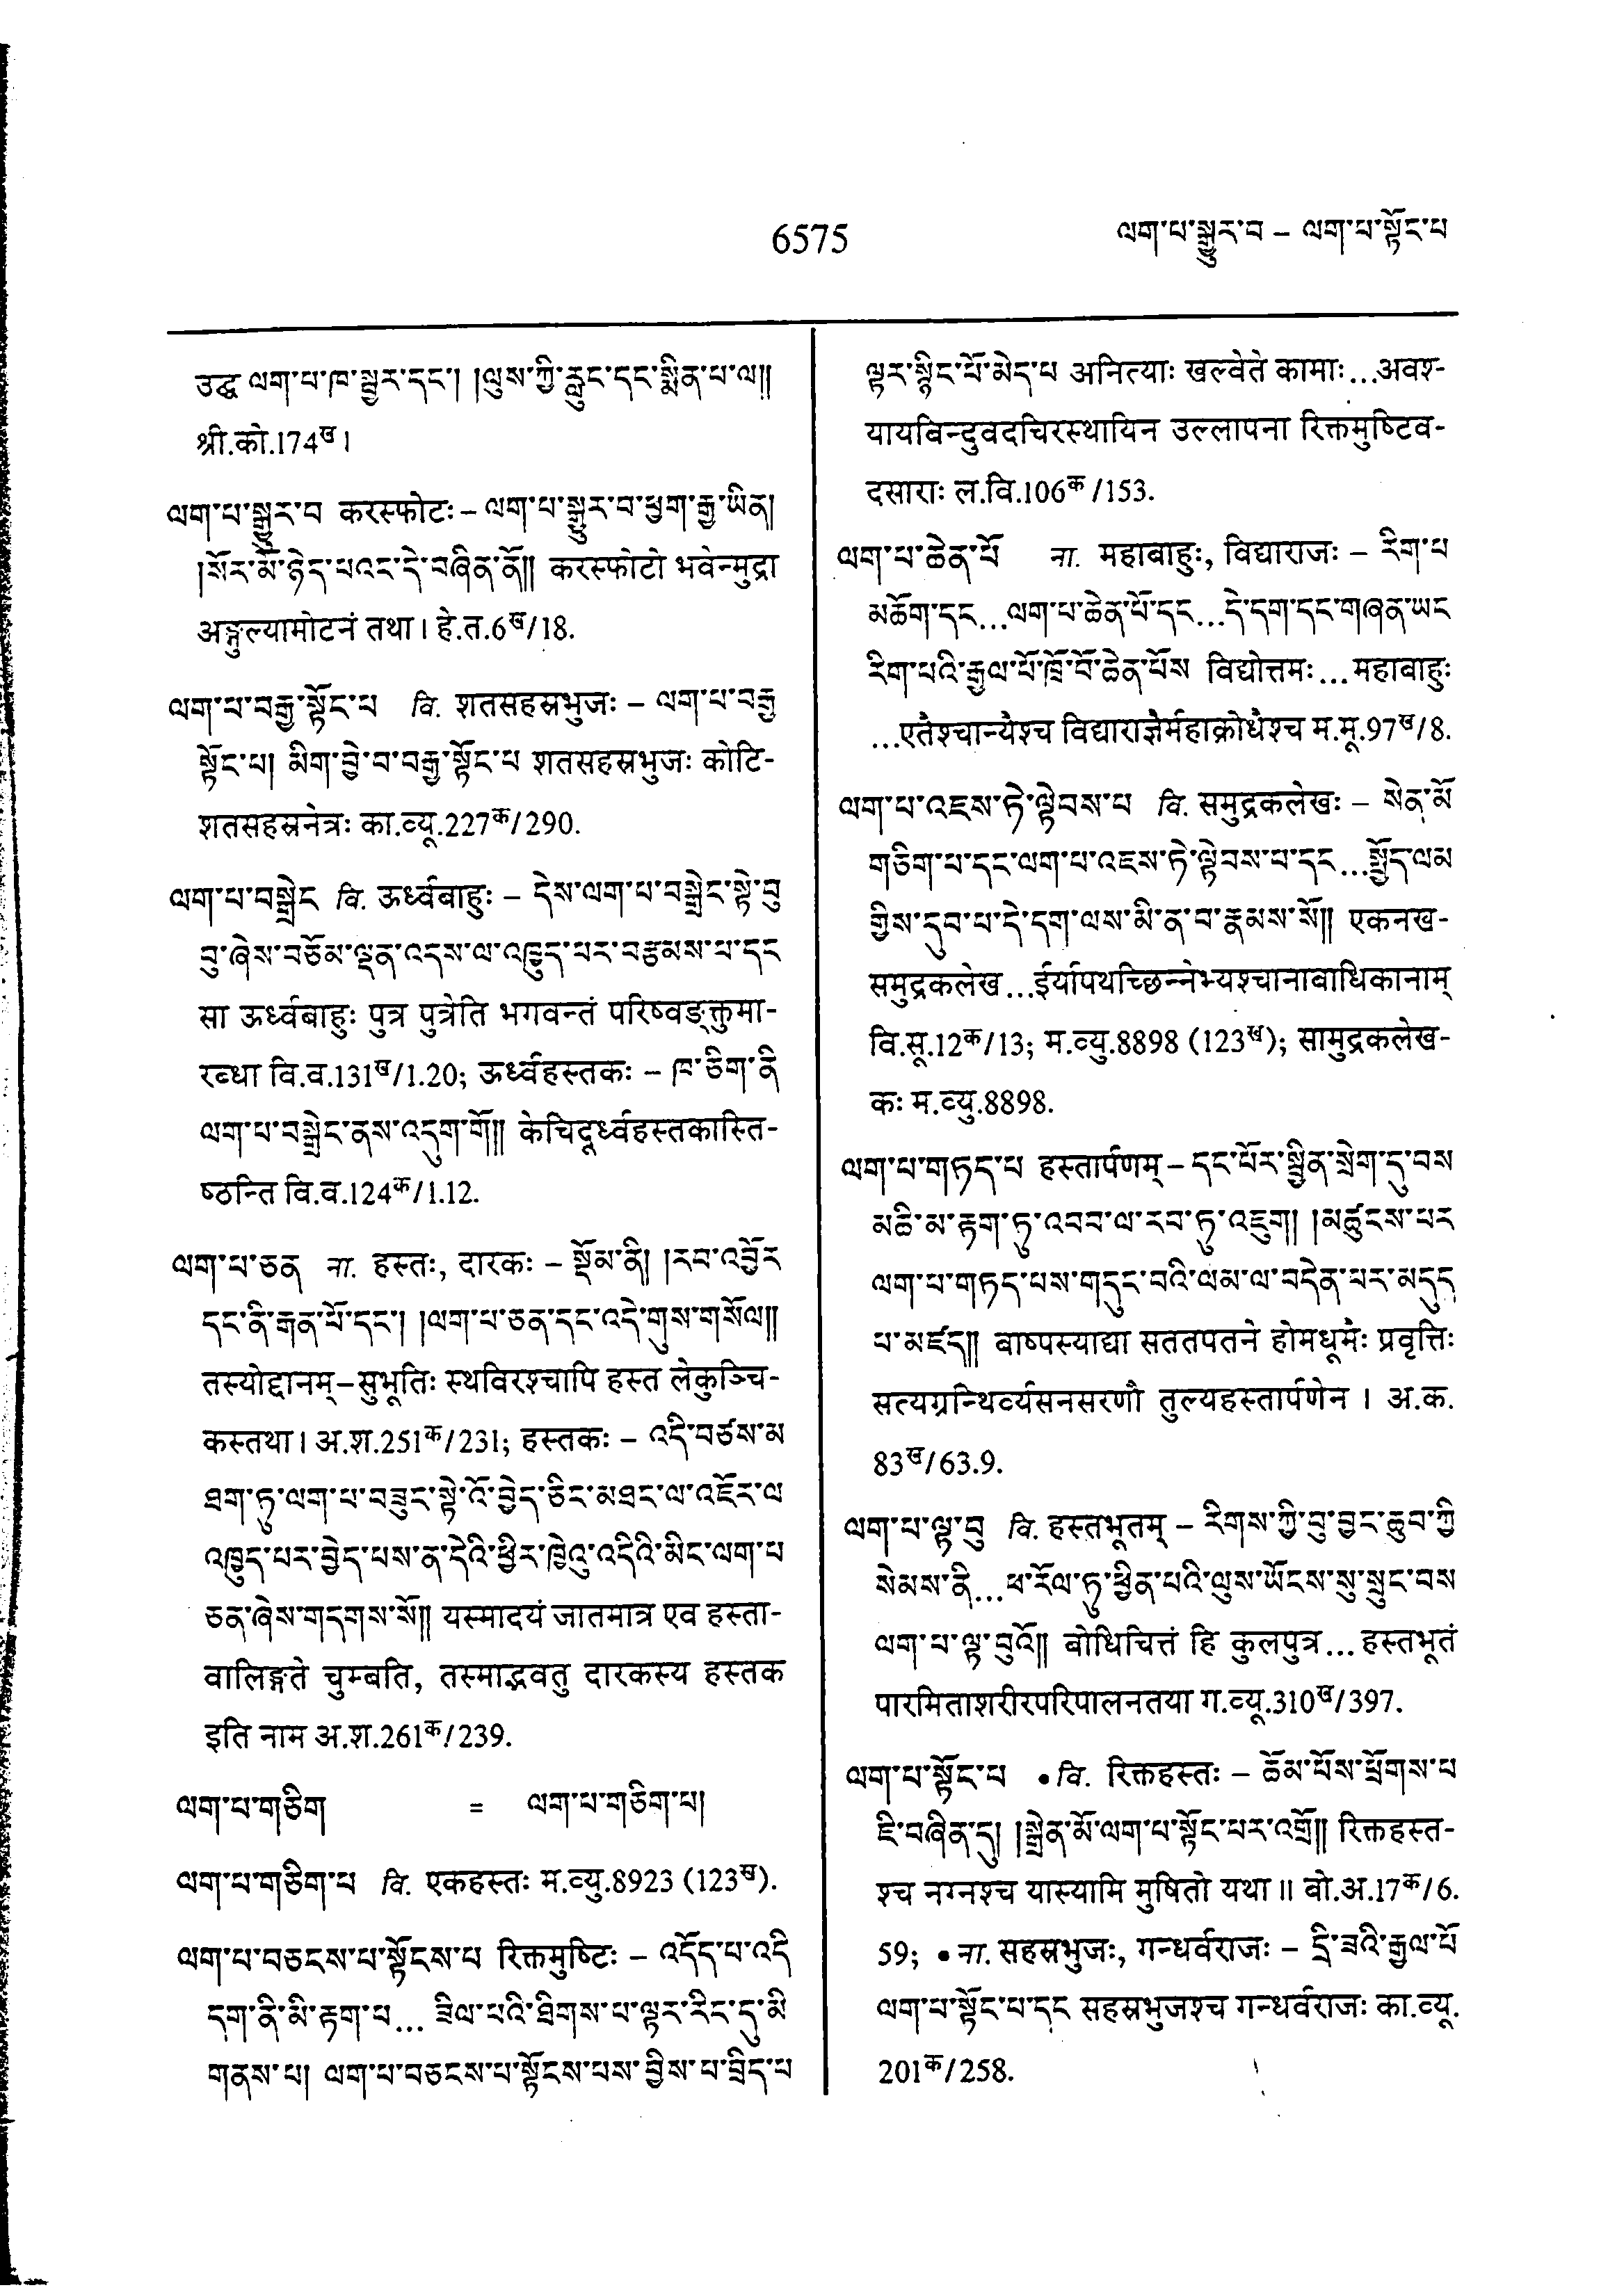 6575
ལག་པ་སྒྱུར་བ – ལག་པ་སྟོང་པ
उद्ध ལག་པ་ཁ་སྦྱར་དང་། །ལུས་ཀྱི་རླུང་དང་སྨིན་པ་ལ༎
श्री.को.174ख।
ལག་པ་སྒྱུར་བ करस्फोटः – ལག་པ་སྒྱུར་བ་ཕྱག་རྒྱ་ཡིན།
།སོར་མོ་ཉེད་པའང་དེ་བཞིན་ནོ༎ करस्फोटो भवेन्मुद्रा
अङ्गुल्यामोटनं तथा। हे.त.6ख/18.
ལག་པ་བརྒྱ་སྟོང་པ वि. शतसहस्रभुजः – ལག་པ་བརྒྱ
སྟོང་པ། མིག་བྱེ་བ་བརྒྱ་སྟོང་པ शतसहस्रभुजः कोटि-
शतसहस्रनेत्रः का.व्यू.227क/290.
ལག་པ་བསྒྲེང वि. ऊर्ध्वबाहुः – དེས་ལག་པ་བསྒྲེང་སྟེ་བུ
བུ་ཞེས་བཅོམ་ལྡན་འདས་ལ་འཁྱུད་པར་བརྩམས་པ་དང
सा ऊर्ध्वबाहुः पुत्र पुत्रेति भगवन्तं परिष्वङ्क्तुमा-
रब्धा वि.व.131ख/1.20; ऊर्ध्वहस्तकः – ཁ་ཅིག་ནི
ལག་པ་བསྒྲེང་ནས་འདུག་གོ༎ केचिदूर्ध्वहस्तकास्ति-
ष्ठन्ति वि.व.124क/1.12.
ལག་པ་ཅན ना. हस्तः, दारकः – སྡོམ་ནི། །རབ་འབྱོར
དང་ནི་རྒན་པོ་དང་། །ལག་པ་ཅན་དང་འདེ་གུས་གསོལ༎
तस्योद्दानम्–सुभूतिः स्थविरश्चापि हस्त लेकुञ्चि-
कस्तथा। अ.श.251क/231; हस्तकः – འདི་བཙས་མ
ཐག་ཏུ་ལག་པ་བཟུང་སྟེ་འོ་བྱེད་ཅིང་མཐང་ལ་འཇོར་ལ
འཁྱུད་པར་བྱེད་པས་ན་དེའི་ཕྱིར་ཁྱེའུ་འདིའི་མིང་ལག་པ
ཅན་ཞེས་གདགས་སོ༎ यस्मादयं जातमात्र एव हस्ता-
वालिङ्गते चुम्बति, तस्माद्भवतु दारकस्य हस्तक
इति नाम अ.श.261क/239.
ལག་པ་གཅིག = ལག་པ་གཅིག་པ།
ལག་པ་གཅིག་པ वि. एकहस्तः म.व्यु.8923 (123ख).
ལག་པ་བཅངས་པ་སྟོངས་པ रिक्तमुष्टिः – འདོད་པ་འདི
དག་ནི་མི་རྟག་པ... ཟིལ་པའི་ཐིགས་པ་ལྟར་རིང་དུ་མི
གནས་པ། ལག་པ་བཅངས་པ་སྟོངས་པས་བྱིས་པ་བྲིད་པ
ལྟར་སྙིང་པོ་མེད་པ अनित्याः खल्वेते कामाः...अवश-
यायविन्दुवदचिरस्थायिन उल्लापना रिक्तमुष्टिव-
दसाराः ल.वि.106क/153.
ལག་པ་ཆེན་པོ ना. महाबाहुः, विद्याराजः – རིག་པ
མཆོག་དང...ལག་པ་ཆེན་པོ་དང...དེ་དག་དང་གཞན་ཡང
རིག་པའི་རྒྱལ་པོ་ཁྲོ་བོ་ཆེན་པོས विद्योत्तमः...महाबाहुः
...एतैश्चान्यैश्च विद्याराज्ञैर्महाक्रोधैश्च म.मू.97ख/8.
ལག་པ་འཇས་ཏེ་ལྟེབས་པ वि. समुद्रकलेखः – སེན་མོ
གཅིག་པ་དང་ལག་པ་འཇས་ཏེ་ལྟེབས་པ་དང...སྤྱོད་ལམ
གྱིས་དུབ་པ་དེ་དག་ལས་མི་ན་བ་རྣམས་སོ༎ एकनख-
समुद्रकलेख...ईर्यापथच्छिन्नेभ्यश्चानाबाधिकानाम्
वि.सू.12क/13; म.व्यु.8898 (123ख); सामुद्रकलेख-
कः म.व्यु.8898.
ལག་པ་གཏད་པ हस्तार्पणम् – དང་པོར་སྦྱིན་སྲེག་དུ་བས
མཆི་མ་རྟག་ཏུ་འབབ་ལ་རབ་ཏུ་འཇུག། །མཚུངས་པར
ལག་པ་གཏད་པས་གདུང་བའི་ལམ་ལ་བདེན་པར་མདུད
པ་མཛད༎ वाष्पस्याद्या सततपतने होमधूमैः प्रवृत्तिः
सत्यग्रन्थिर्व्यसनसरणौ तुल्यहस्तार्पणेन । अ.क.
83ख/63.9.
ལག་པ་ལྟ་བུ वि. हस्तभूतम् – རིགས་ཀྱི་བུ་བྱང་ཆུབ་ཀྱི
སེམས་ནི...ཕ་རོལ་ཏུ་ཕྱིན་པའི་ལུས་ཡོངས་སུ་སྲུང་བས
ལག་པ་ལྟ་བུའོ༎ बोधिचित्तं हि कुलपुत्र... हस्तभूतं
पारमिताशरीरपरिपालनतया ग.व्यू.310ख/397.
ལག་པ་སྟོང་པ • वि. रिक्तहस्तः – ཆོམ་པོས་ཕྲོགས་པ
ཇི་བཞིན་དུ། །སྒྲེན་མོ་ལག་པ་སྟོང་པར་འགྲོ༎ रिक्तहस्त-
श्च नग्नश्च यास्यामि मुषितो यथा॥ बो.अ.17क/6.
59; • ना. सहस्रभुजः, गन्धर्वराजः – དྲི་ཟའི་རྒྱལ་པོ
ལག་པ་སྟོང་པ་དང सहस्रभुजश्च गन्धर्वराजः का.व्यू.
201क/258.